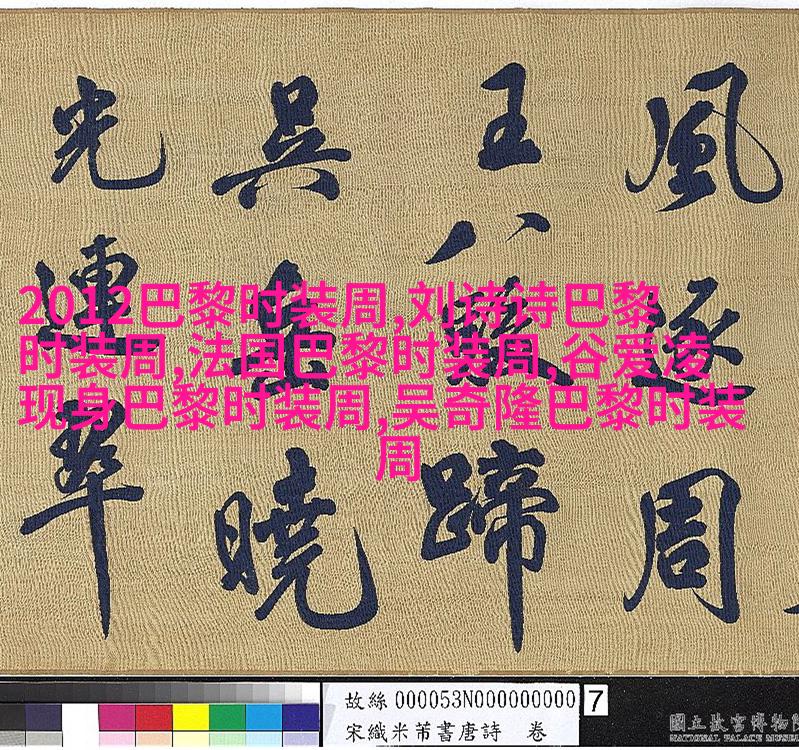 風逐周
王八駿蹄
吳岳曉
光連翠
2012巴黎时装周,刘诗诗巴黎
时装周,法国巴黎时装周,谷爱凌
现身巴黎时装周,吴奇隆巴黎时装
周
故絲000053N000000000 7
宋織米芾書唐詩 卷
國立故宮博物院
NATIONAL PALACE MUSEUM